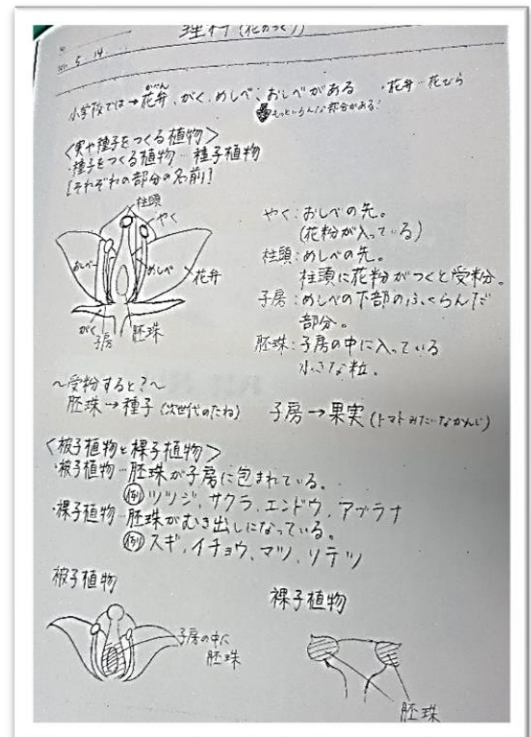 理科(花のつくり)
5.14
小学校では→花弁、がく、めしべ、おしべがある ・花弁-花びら
かべん
もっといろんな部分がある!
<実や種子をつくる植物>
・種子をつくる植物-種子植物
[それぞれの部分の名前]
柱頭
やく
おしべ
めしべ
花弁
がく
子房
胚珠
やく:おしべの先。
(花粉が入っている)
柱頭:めしべの先。
柱頭に花粉がつくと受粉。
子房:めしべの下部のふくらんだ
部分。
胚珠:子房の中に入っている
小さな粒。
~受粉すると?~
胚珠→種子(次世代のたね) 子房→果実(トマトみたいなかんじ)
<被子植物と裸子植物>
・被子植物-胚珠が子房に包まれている。
例 ツツジ、サクラ、エンドウ、アブラナ
・裸子植物-胚珠がむき出しになっている。
例 スギ、イチョウ、マツ、ソテツ
被子植物
子房の中に
胚珠
裸子植物
胚珠